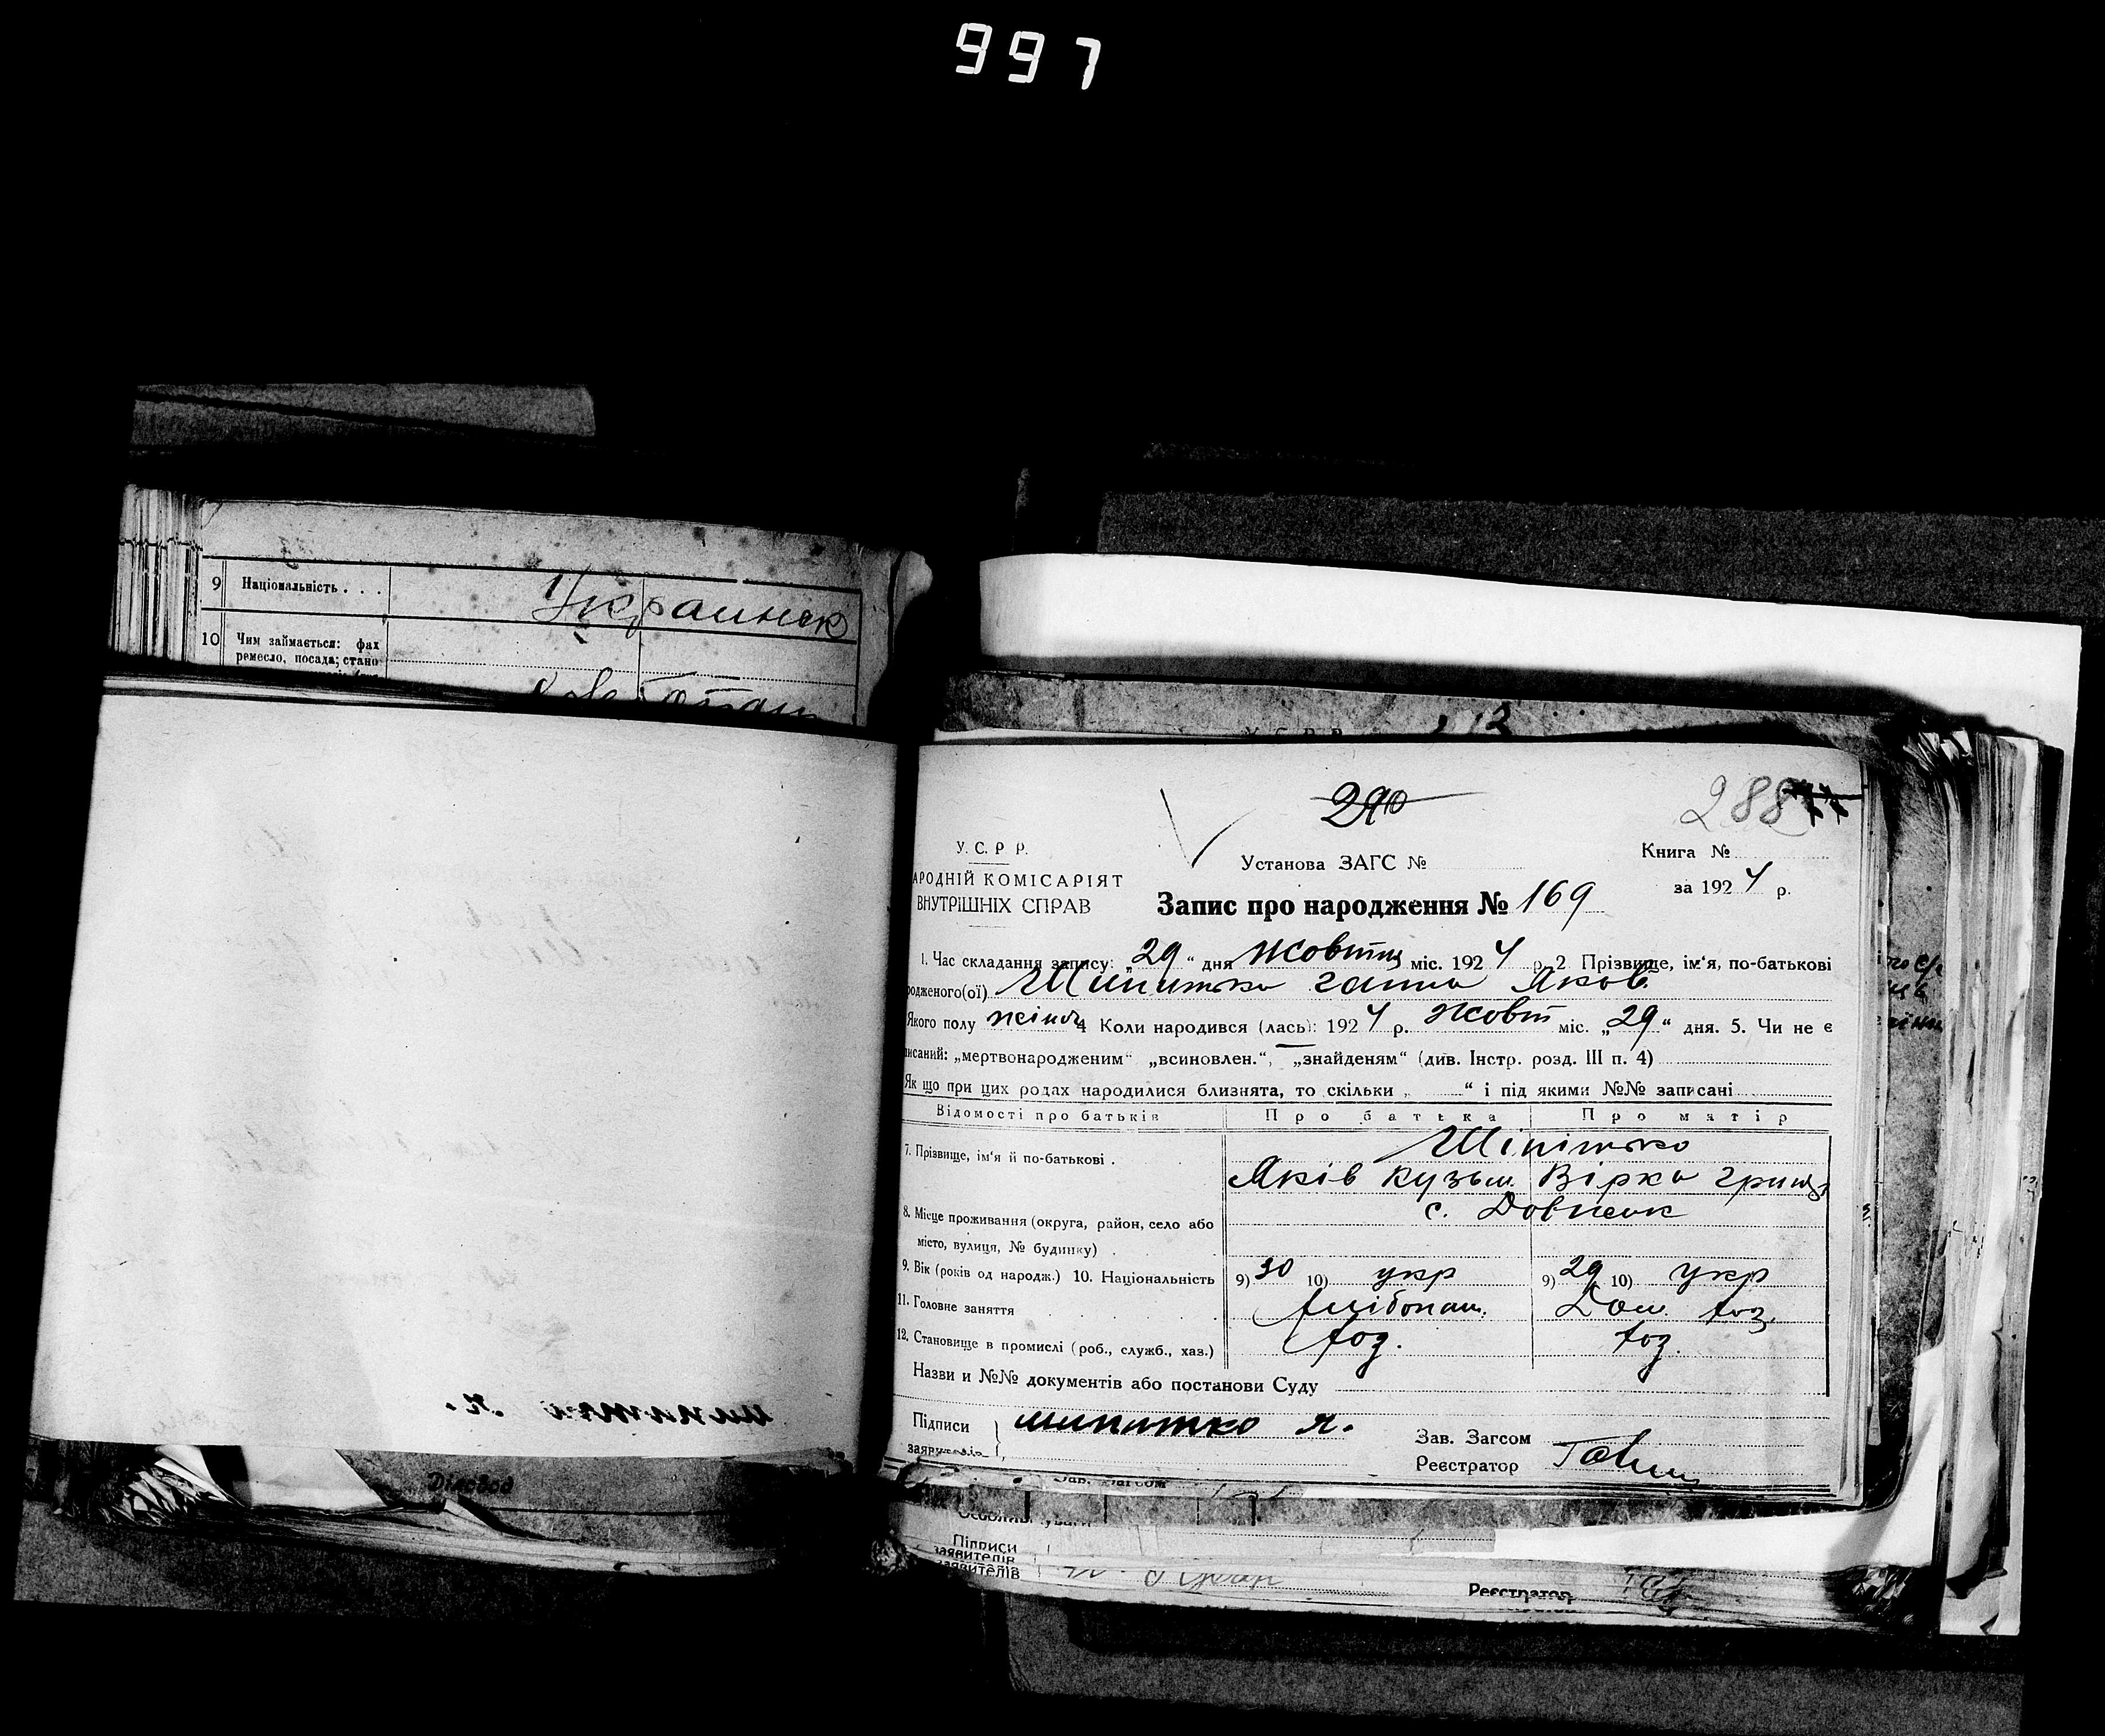 997
9 Національність . . .
Украинск
10 Чим займається: фах
ремесло, посада; стано
Діловод
У. С. Р. Р.
12
290
288
У. С. Р. Р.
АРОДНІЙ КОМІСАРІЯТ
ВНУТРІШНІХ СПРАВ
Установа ЗАГС №
Книга №
за 1924 р.
Запис про народження № 169
1. Час складання запису: „29“ дня Жовтня міс. 1924 р. 2. Прізвище, ім‘я, по-батькові
родженого(ої) Шипитько Ганна Яков
Якого полу жіноч 4 Коли народився (лась): 1924 р. Жовт міс. „29“ дня. 5. Чи не є
писаний: „мертвонародженим“ „всиновлен.“, „знайденям“ (див. Інстр. розд. III п. 4)
Як що при цих родах народилися близнята, то скільки „ “ і під якими №№ записані
Відомості про батьків Про батька Про матір
7. Прізвище, ім‘я й по-батькові .
Шіпітько
Яків Кузьм. Вірка Гриц.
8. Місце проживання (округа, район, село або
місто, вулиця, № будинку) .
с.
9. Вік (років од народж.) 10. Національність 9) 30 10) укр 9) 29 10) укр
11. Головне заняття Хлібопаш. Дом. хоз.
12. Становище в промислі (роб., служб., хаз.) хоз. хоз.
Назви и №№ документів або постанови Суду
Підписи
заявителів
шипитко Я.
Зав. Загсом
Реєстратор
Зав. Загсом
Підписи
заявителів
заявителів
Реєстратор